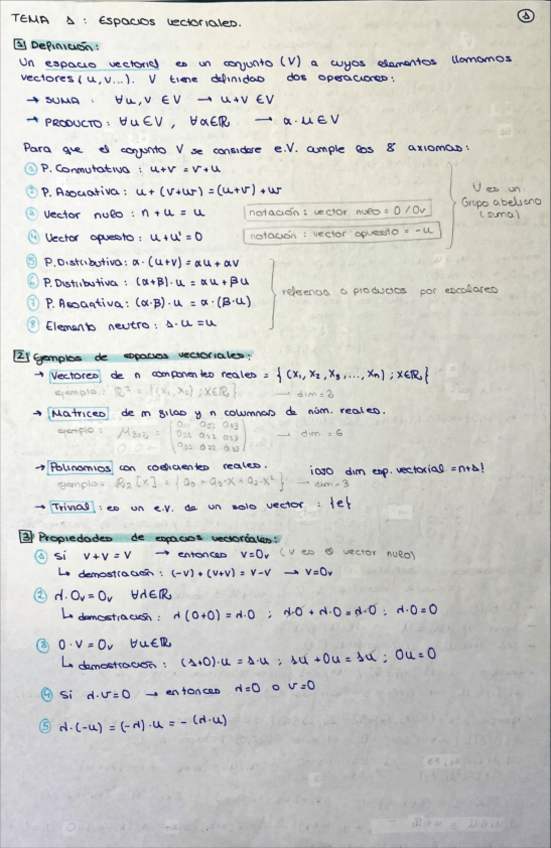 TEMA 1 : Espacios vectoriales.
1
1 Definición:
Un espacio vectorial es un conjunto (V) a cuyos elementos llamamos
vectores (u, v...). V tiene definidas dos operaciones:
→ SUMA : ∀u, v ∈ V → u+v ∈ V
→ PRODUCTO: ∀u ∈ V, ∀α∈ℝ, → α·u ∈ V
Para que el conjunto V se considere e.V. cumple los 8 axiomas:
① P. Conmutativa : u+v = v+u
② P. Asociativa : u + (v+w) = (u+v) + w
③ Vector nulo : n + u = u
notación: vector nulo = 0 / 0v
④ Vector opuesto : u + u' = 0
notación : vector opuesto = -u
V es un
Grupo abeliano
(suma)
⑤ P. Distributiva: α·(u+v) = αu + αv
⑥ P. Distributiva : (α+β)·u = αu + βu
⑦ P. Asociativa : (α·β)·u = α·(β·u)
⑧ Elemento neutro : 1·u = u
referencia a productos por escalares
2 Ejemplos de espacios vectoriales:
→ Vectores de n componentes reales = { (x₁, x₂, x₃, ..., xₙ) ; x∈ℝ }
ejemplo: ℝ² = {(x₁, x₂) ; x∈ℝ} → dim=2
→ Matrices de m filas y n columnas de núm. reales.
ejemplo : → dim = 6
→ Polinomios con coeficientes reales. ¡ojo dim esp. vectorial = n+1!
ejemplo: ℝ₂[x] = {a₀ + a₁·x + a₂·x²} → dim=3
→ Trivial : es un e.V. de un solo vector : {e}
3 Propiedades de espacios vectoriales:
① Si v+v = v → entonces v=0v (v es el vector nulo)
↳ demostración : (-v) + (v+v) = v-v → v=0v
② λ·0v = 0v ∀λ∈ℝ
↳ demostración: λ(0+0) = λ·0 ; λ·0 + λ·0 = λ·0 ; λ·0 = 0
③ 0·v = 0v ∀u∈ℝ
↳ demostración: (1+0)·u = 1·u ; 1u + 0u = 1u ; 0u = 0
④ Si λ·v = 0 → entonces λ=0 o v=0
⑤ λ·(-u) = (-λ)·u = -(λ·u)